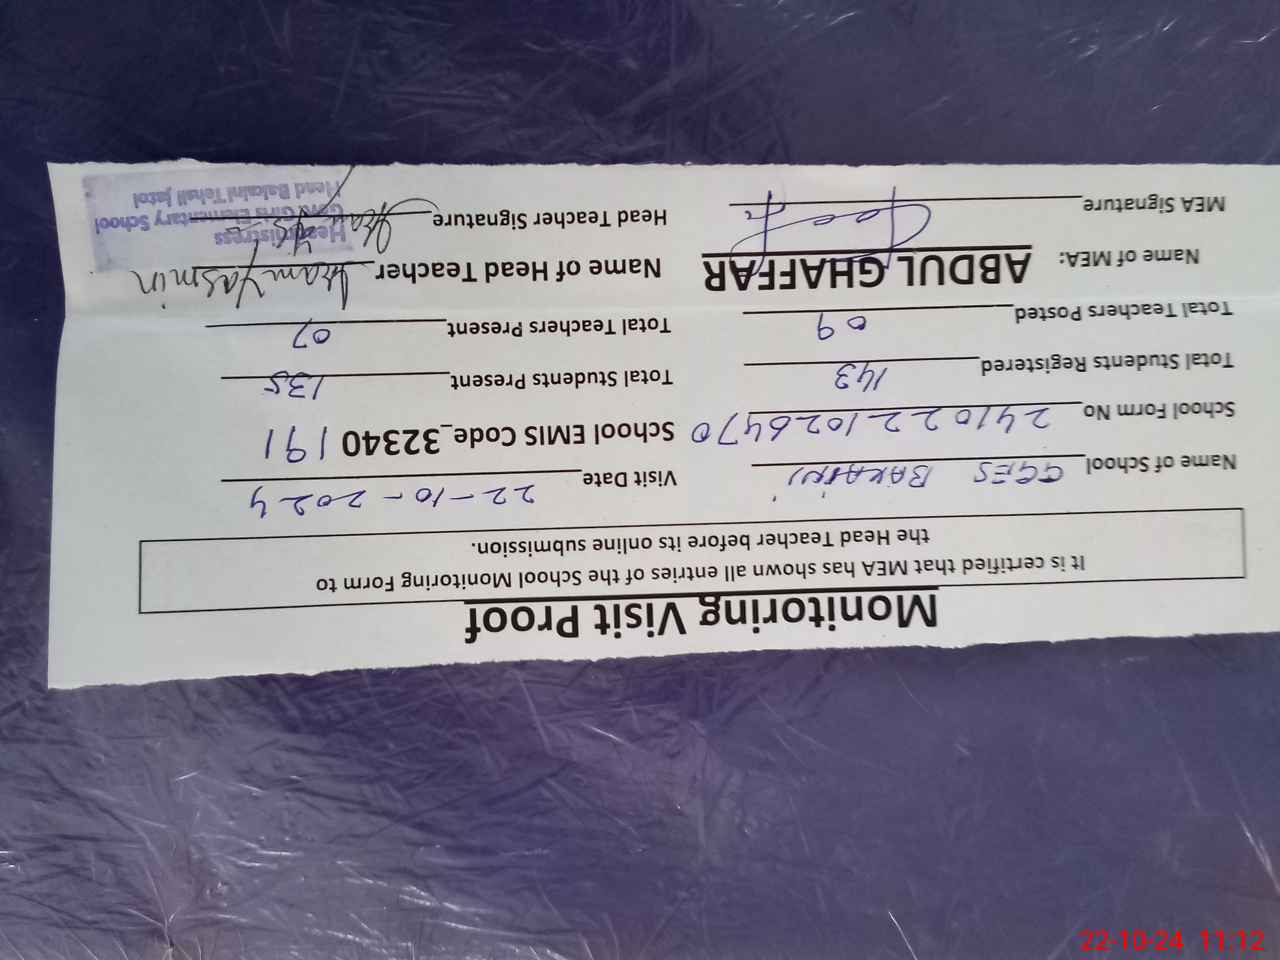 Monitoring Visit Proof
It is certified that MEA has shown all entries of the School Monitoring Form to
the Head Teacher before its online submission.
Name of School GGES BAKAINI Visit Date 22-10-2024
School Form No 2410221026470 School EMIS Code_32340191
Total Students Registered 143 Total Students Present 135
Total Teachers Posted 09 Total Teachers Present 07
Name of MEA: ABDUL GHAFFAR Name of Head Teacher Iram Yasmin
MEA Signature Head Teacher Signature
Headmistress
Govt. Girls Elementary School
Hend Bakaini Tehsil Jatoi
22-10-24 11:12